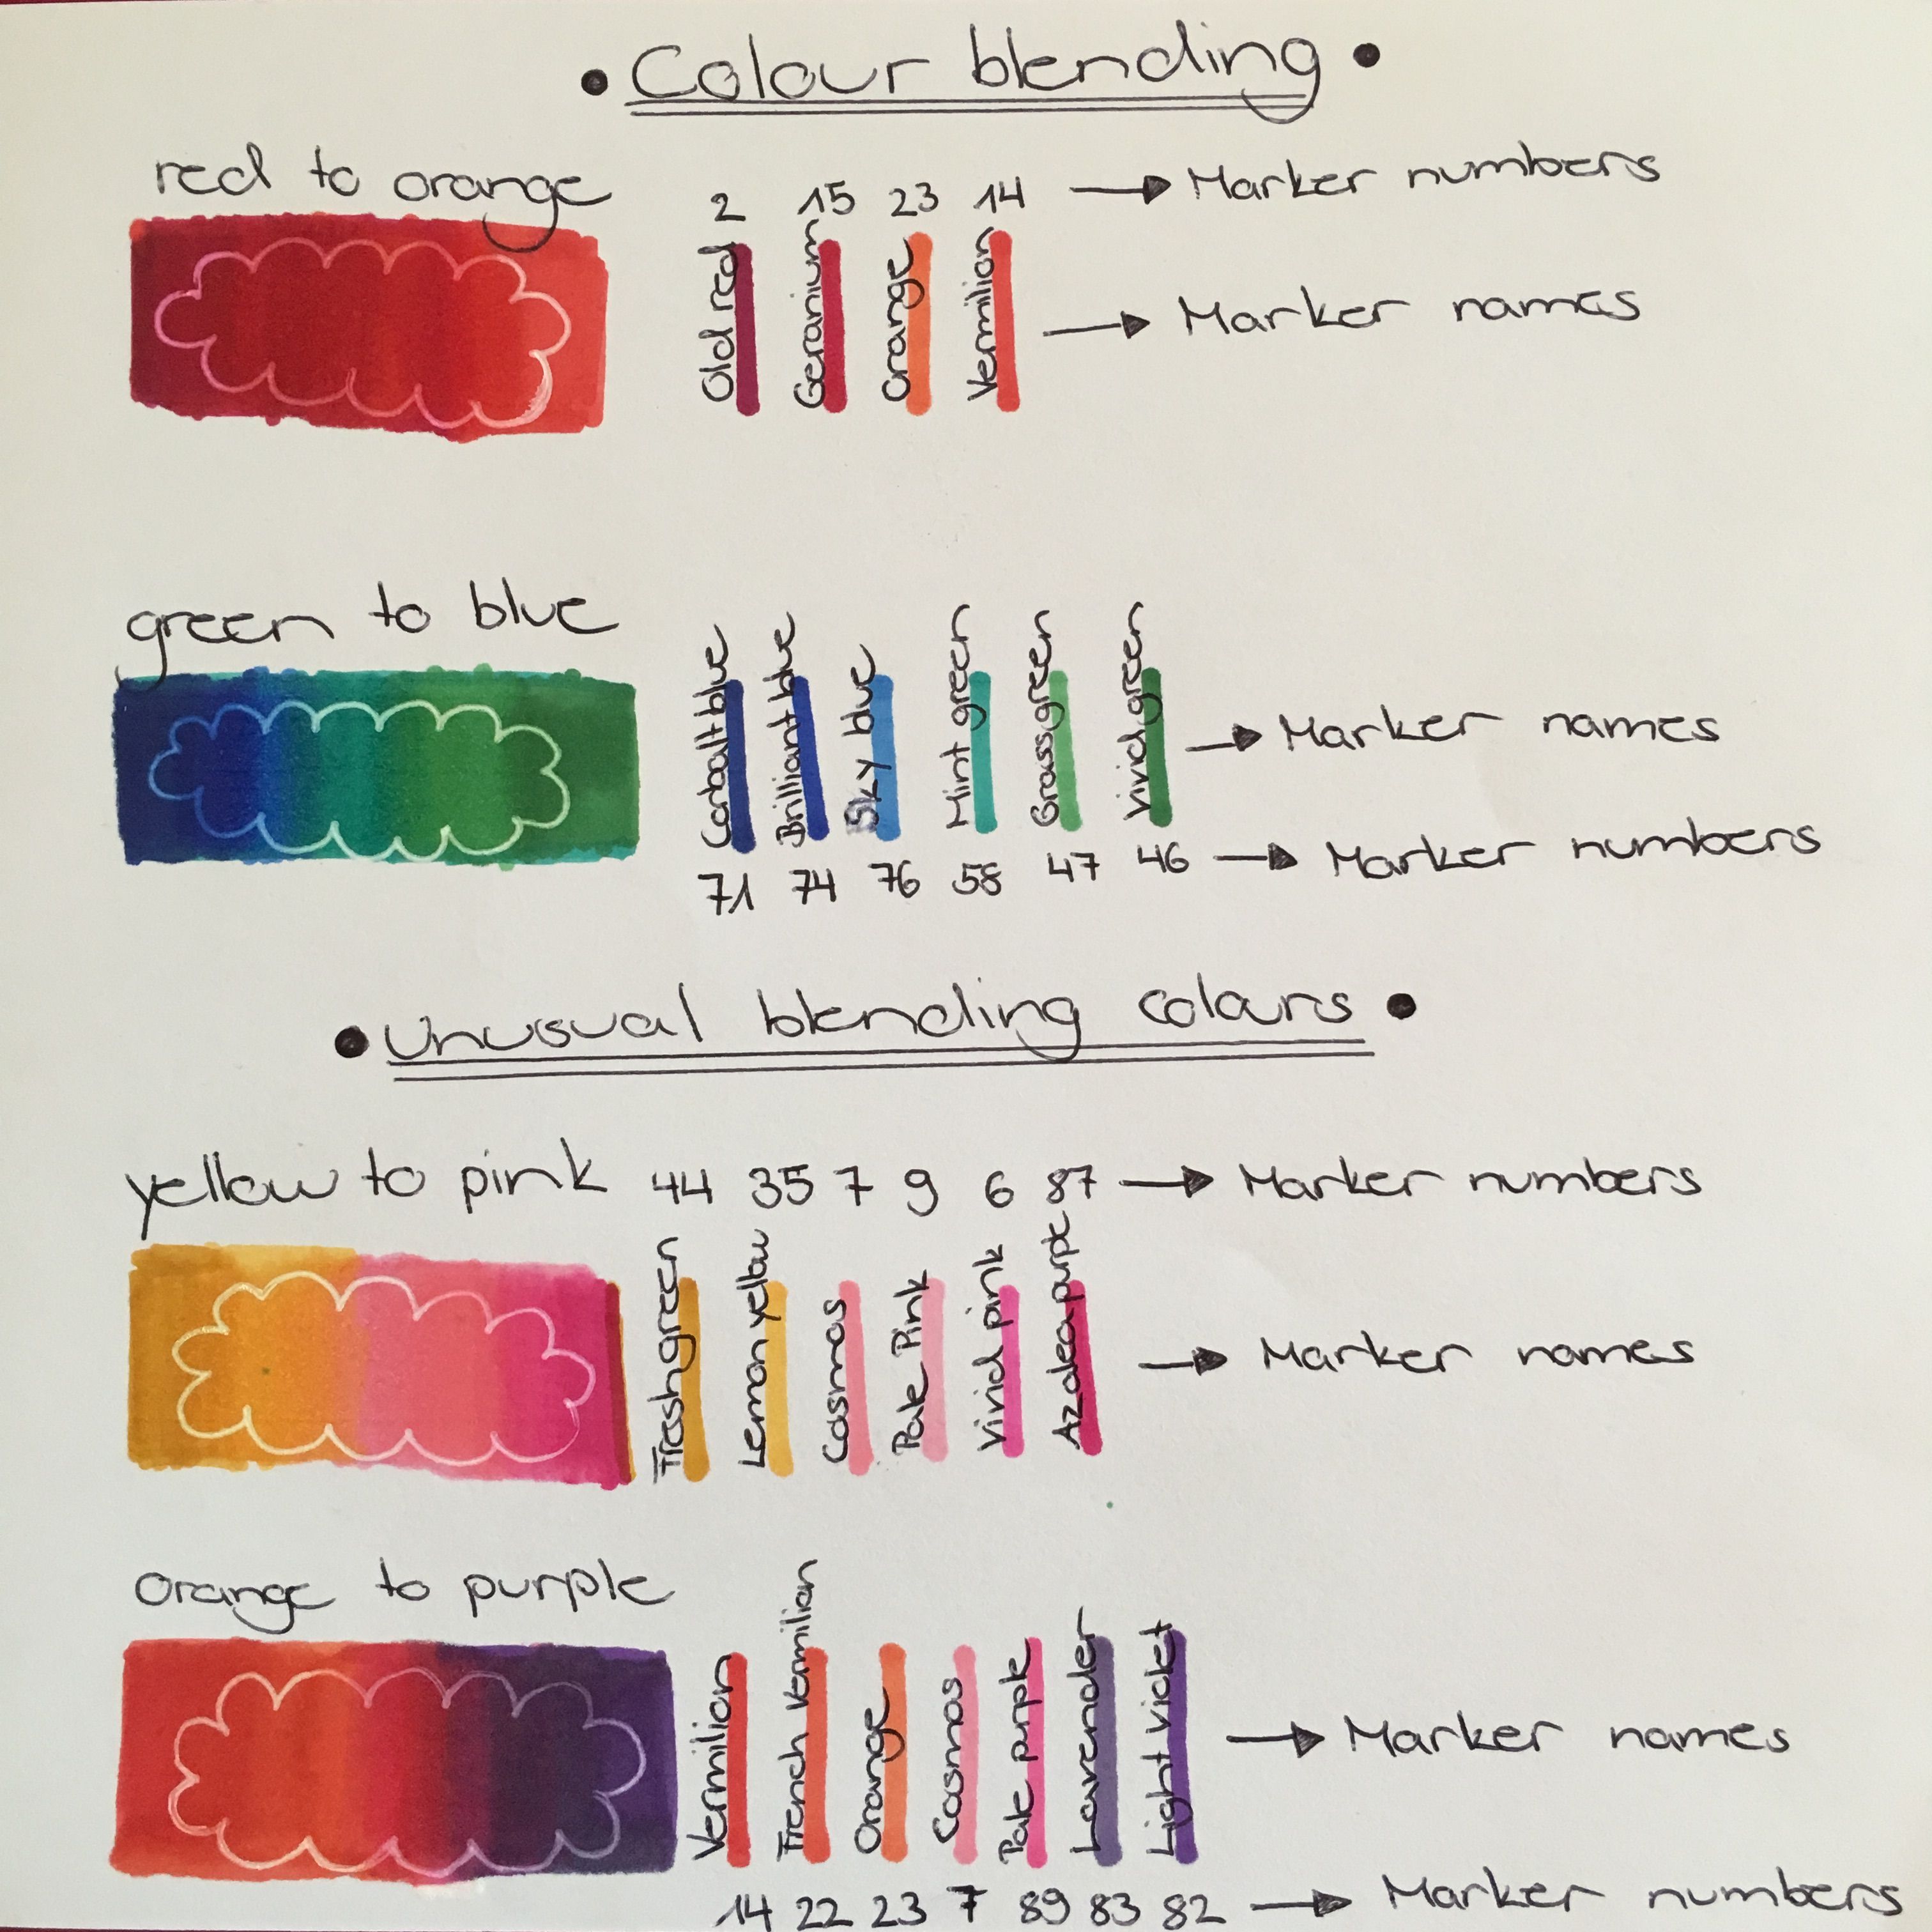 • Colour blending •
red to orange
2 15 23 14 → Marker numbers
Old red Geranium Orange Vermilion → Marker names
green to blue
Carbalt blue Brilliant blue Sky blue Mint green Grass green Vivid green → Marker names
71 74 76 58 47 46 → Marker numbers
• Unusual blending colours •
yellow to pink 44 35 7 9 6 87 → Marker numbers
Frash green Lemon yellow Cosmos Pale Pink Vivid pink Azalea purple → Marker names
Orange to purple
Vermilion French Vermilion Orange Cosmos Pale purple Lavender Light violet → Marker names
14 22 23 7 89 83 82 → Marker numbers